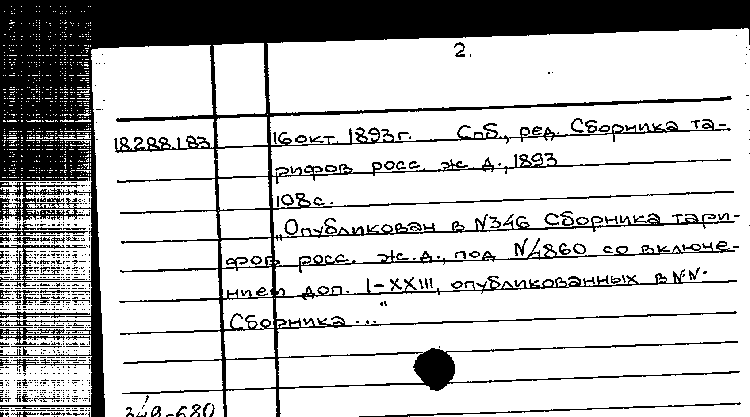 2.
18.288.183 16 окт. 1893 г. Спб., ред. Сборника та-
рифов росс. ж. д., 1893
108 с.
„Опубликован в N346 Сборника тари-
фов росс. ж.д., под N4860 со включе-
нием доп. I-XXIII, опубликованных в NN-
Сборника ..."
349-680